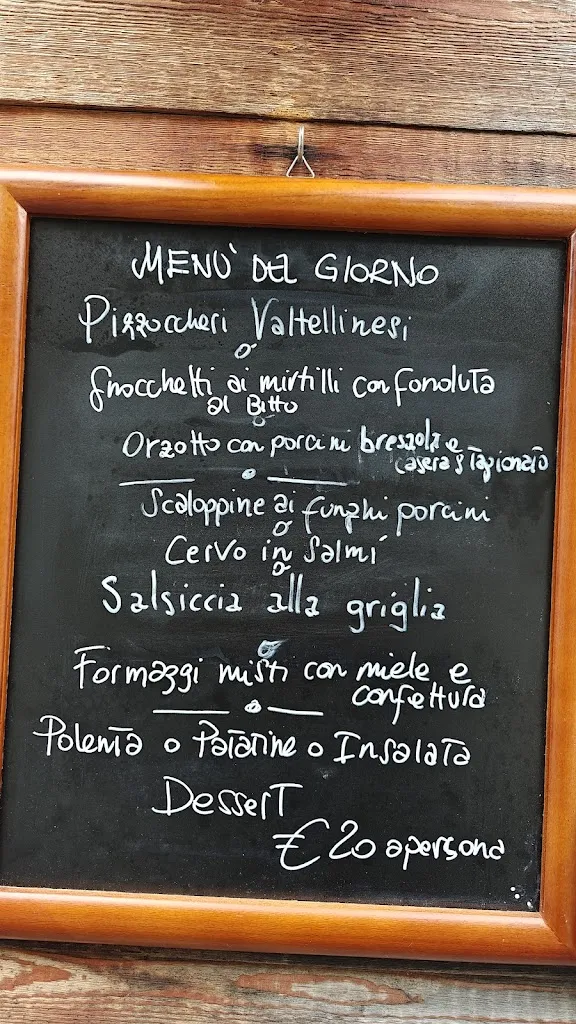 MENÙ DEL GIORNO
Pizzoccheri Valtellinesi
o
Gnocchetti ai mirtilli con fonduta
al Bitto
o
Orzotto con porcini bresaola e
casera stagionato
Scaloppine ai funghi porcini
o
Cervo in Salmì
o
Salsiccia alla griglia
o
Formaggi misti con miele e
confettura
Polenta o Patatine o Insalata
Dessert
€ 20 a persona